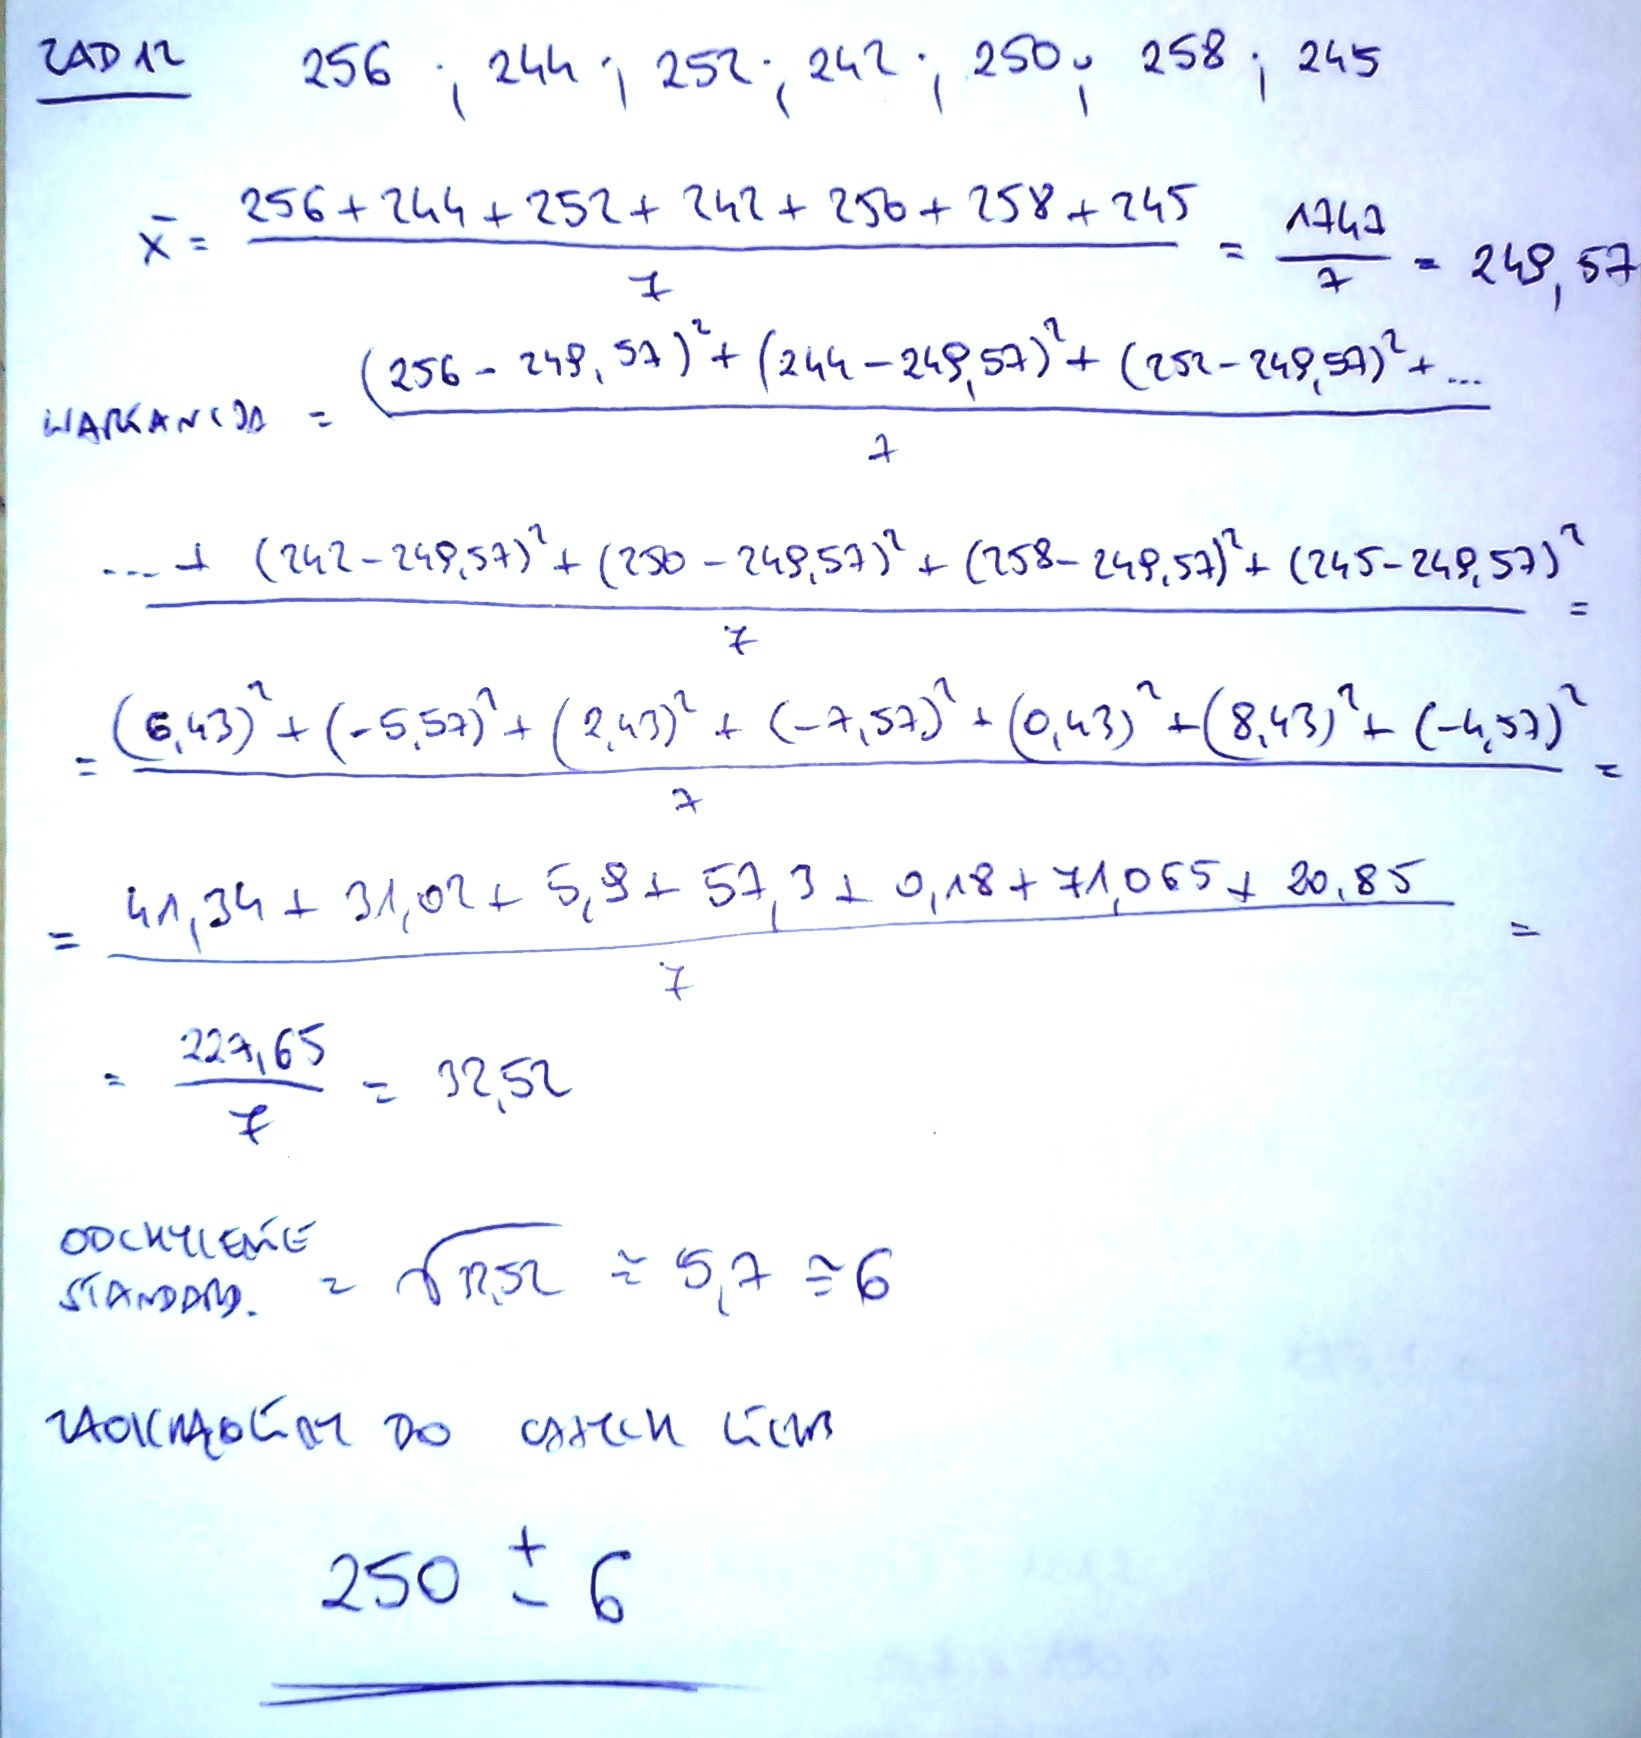 ZAD 12 256 ; 244 ; 252 ; 242 ; 250 ; 258 ; 245
x̄ = (256 + 244 + 252 + 242 + 250 + 258 + 245) / 7 = 1747 / 7 = 249,57
WARIANCJA = ((256 - 249,57)² + (244 - 249,57)² + (252 - 249,57)² + ...) / 7
(... + (242 - 249,57)² + (250 - 249,57)² + (258 - 249,57)² + (245 - 249,57)²) / 7 =
= ((6,43)² + (-5,57)² + (2,43)² + (-7,57)² + (0,43)² + (8,43)² + (-4,57)²) / 7 =
= (41,34 + 31,02 + 5,9 + 57,3 + 0,18 + 71,065 + 20,85) / 7 =
= 227,65 / 7 = 32,52
ODCHYLENIE
STANDARD. = √32,52 ≅ 5,7 ≅ 6
ZAOKRĄGLIMY DO CAŁYCH LICZB
250 ± 6